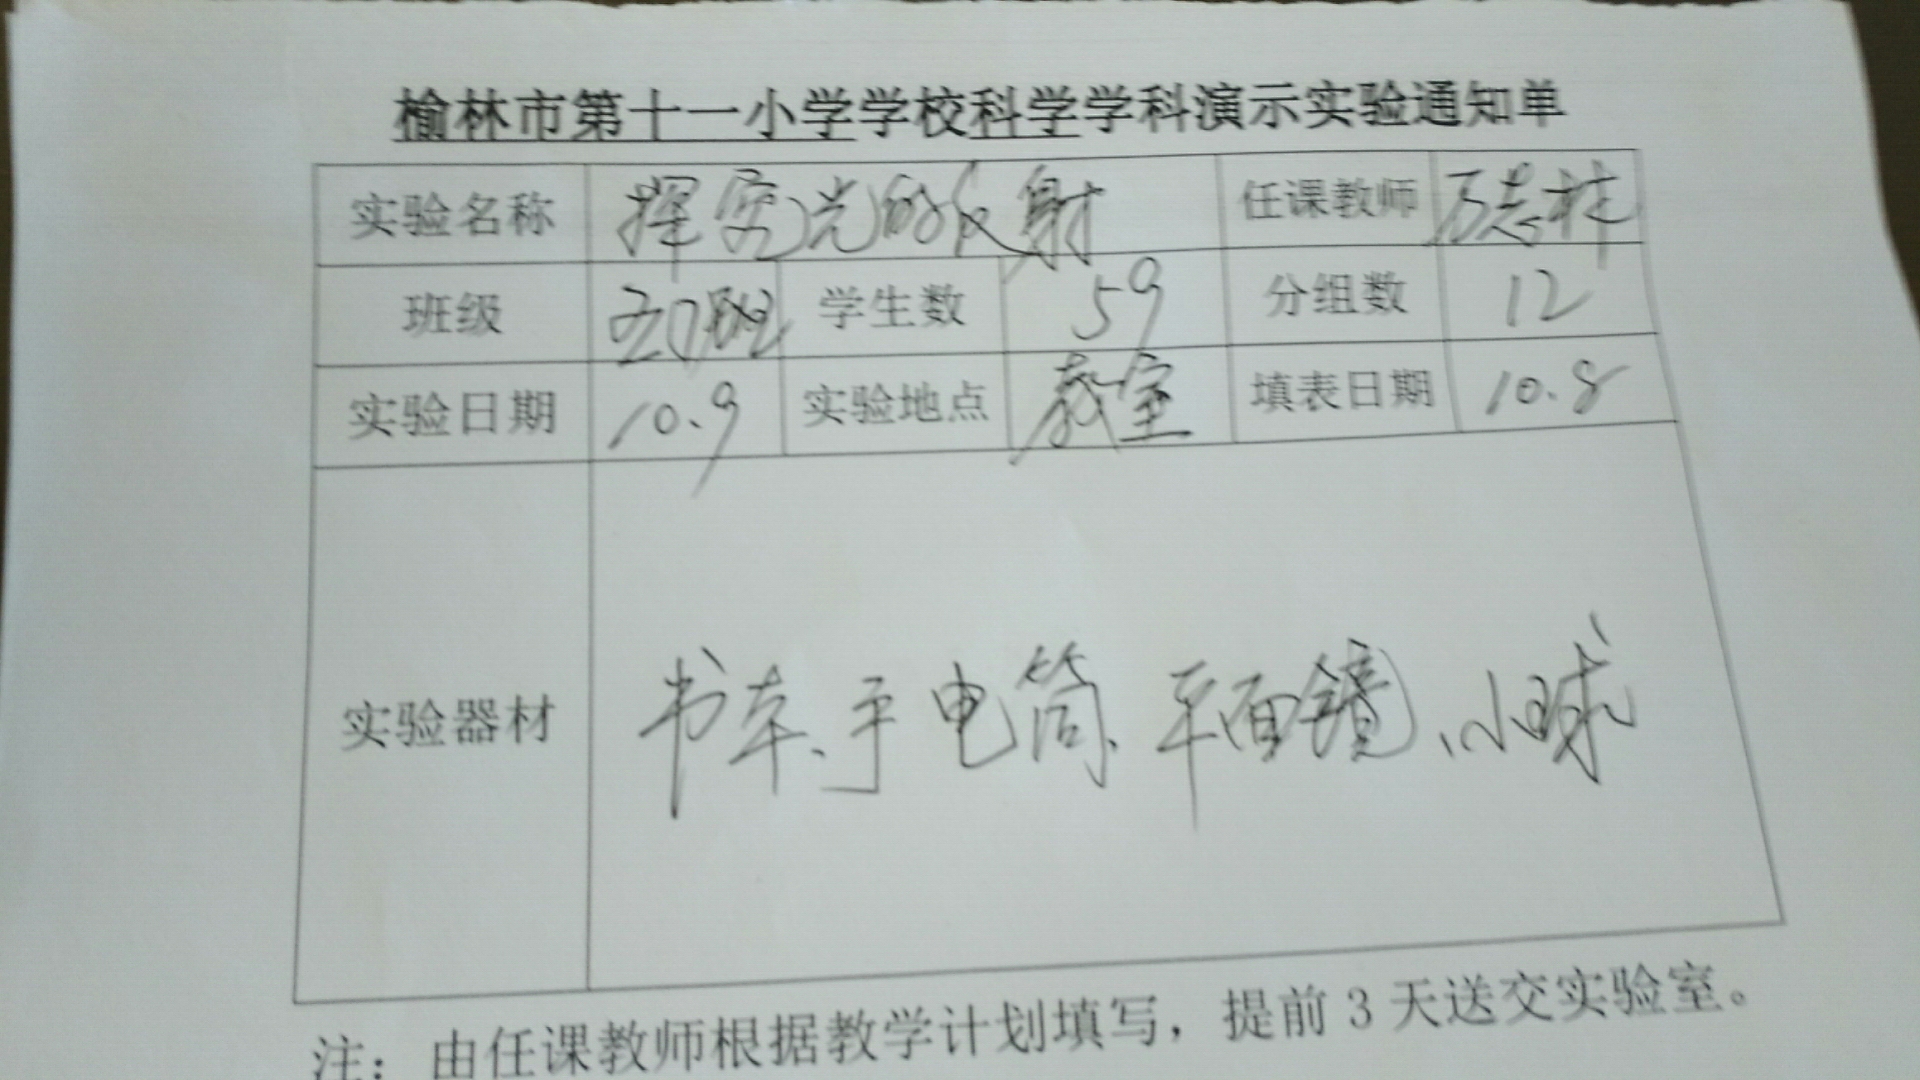 榆林市第十一小学学校科学学科演示实验通知单
实验名称 探究光的反射 任课教师
班级 班 学生数 59 分组数 12
实验日期 10.9 实验地点 教室 填表日期 10.8
实验器材 书本、手电筒、平面镜、小球
注：由任课教师根据教学计划填写，提前3天送交实验室。